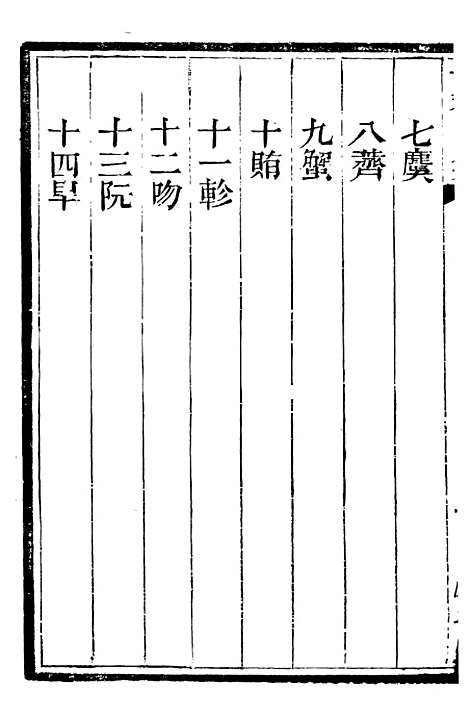 七麌
八薺
九蟹
十賄
十一軫
十二吻
十三阮
十四旱